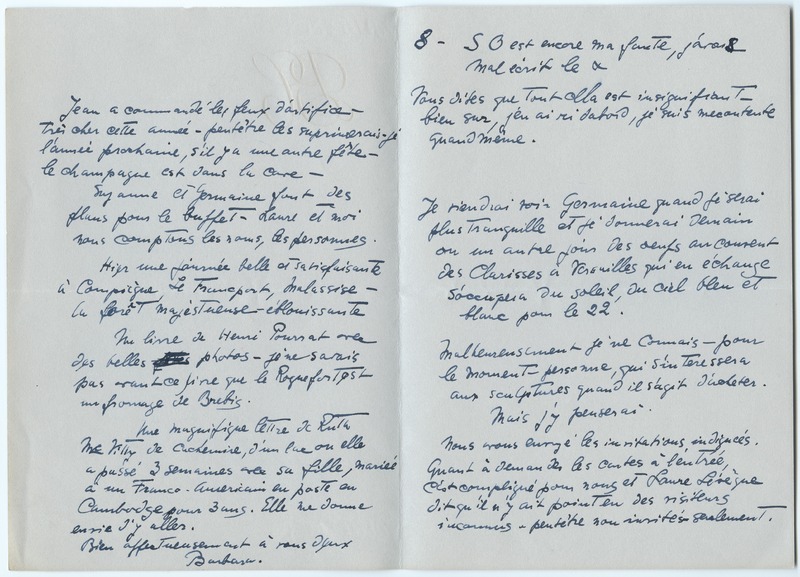 Jean a commandé les feux d'artifice -
très cher cette année - peutêtre les suprimerais-je
l'année prochaine, s'il y a une autre fête -
le champagne est dans la cave -
Suzanne et Germaine font des
plans pour le buffet - Laure et moi
nous comptons les noms, les personnes.
Hier une journée belle et satisfaisante
à Compiègne le Francport, Malassise -
la forêt majestueuse - éblouissante
Un livre de Henri Pourrat avec
des belles photos - je ne savais
pas avant ce livre que le Roquefort est
un fromage de Brebis.
Une magnifique lettre de Ruth
Mc Vitty de Cachemire, d'un lac ou elle
a passé 3 semaines avec sa fille, mariée
à un Franco-Américain en poste au
Cambodge pour 3 ans. Elle me donne
envie d'y aller.
Bien affectueusement à vous deux
Barbara.
8 - S O est encore ma faute, j'avais
mal écrit le
Vous dites que tout cela est insignifiant -
bien sur, j'en ai ri d'abord, je suis mecontente
quand même.
Je viendrai voir Germaine quand je serai
plus tranquille et je donnerai demain
ou un autre jour des oeufs au couvent
des Clarisses à Versailles qui en échange
s'occupera du soleil, du ciel bleu et
blanc pour le 22.
Malheureusement je ne connais - pour
le moment - personne, qui s'interessera
aux sculptures quand il s'agit d'acheter.
Mais j'y penserai.
Nous avons envoyé les invitations indiquées.
Quant à demander les cartes à l'entrée,
c'est compliqué pour nous et Laure Lévêque
dit qu'il n'y ait point eu des visiteurs
inconnus - peutêtre non invités seulement.